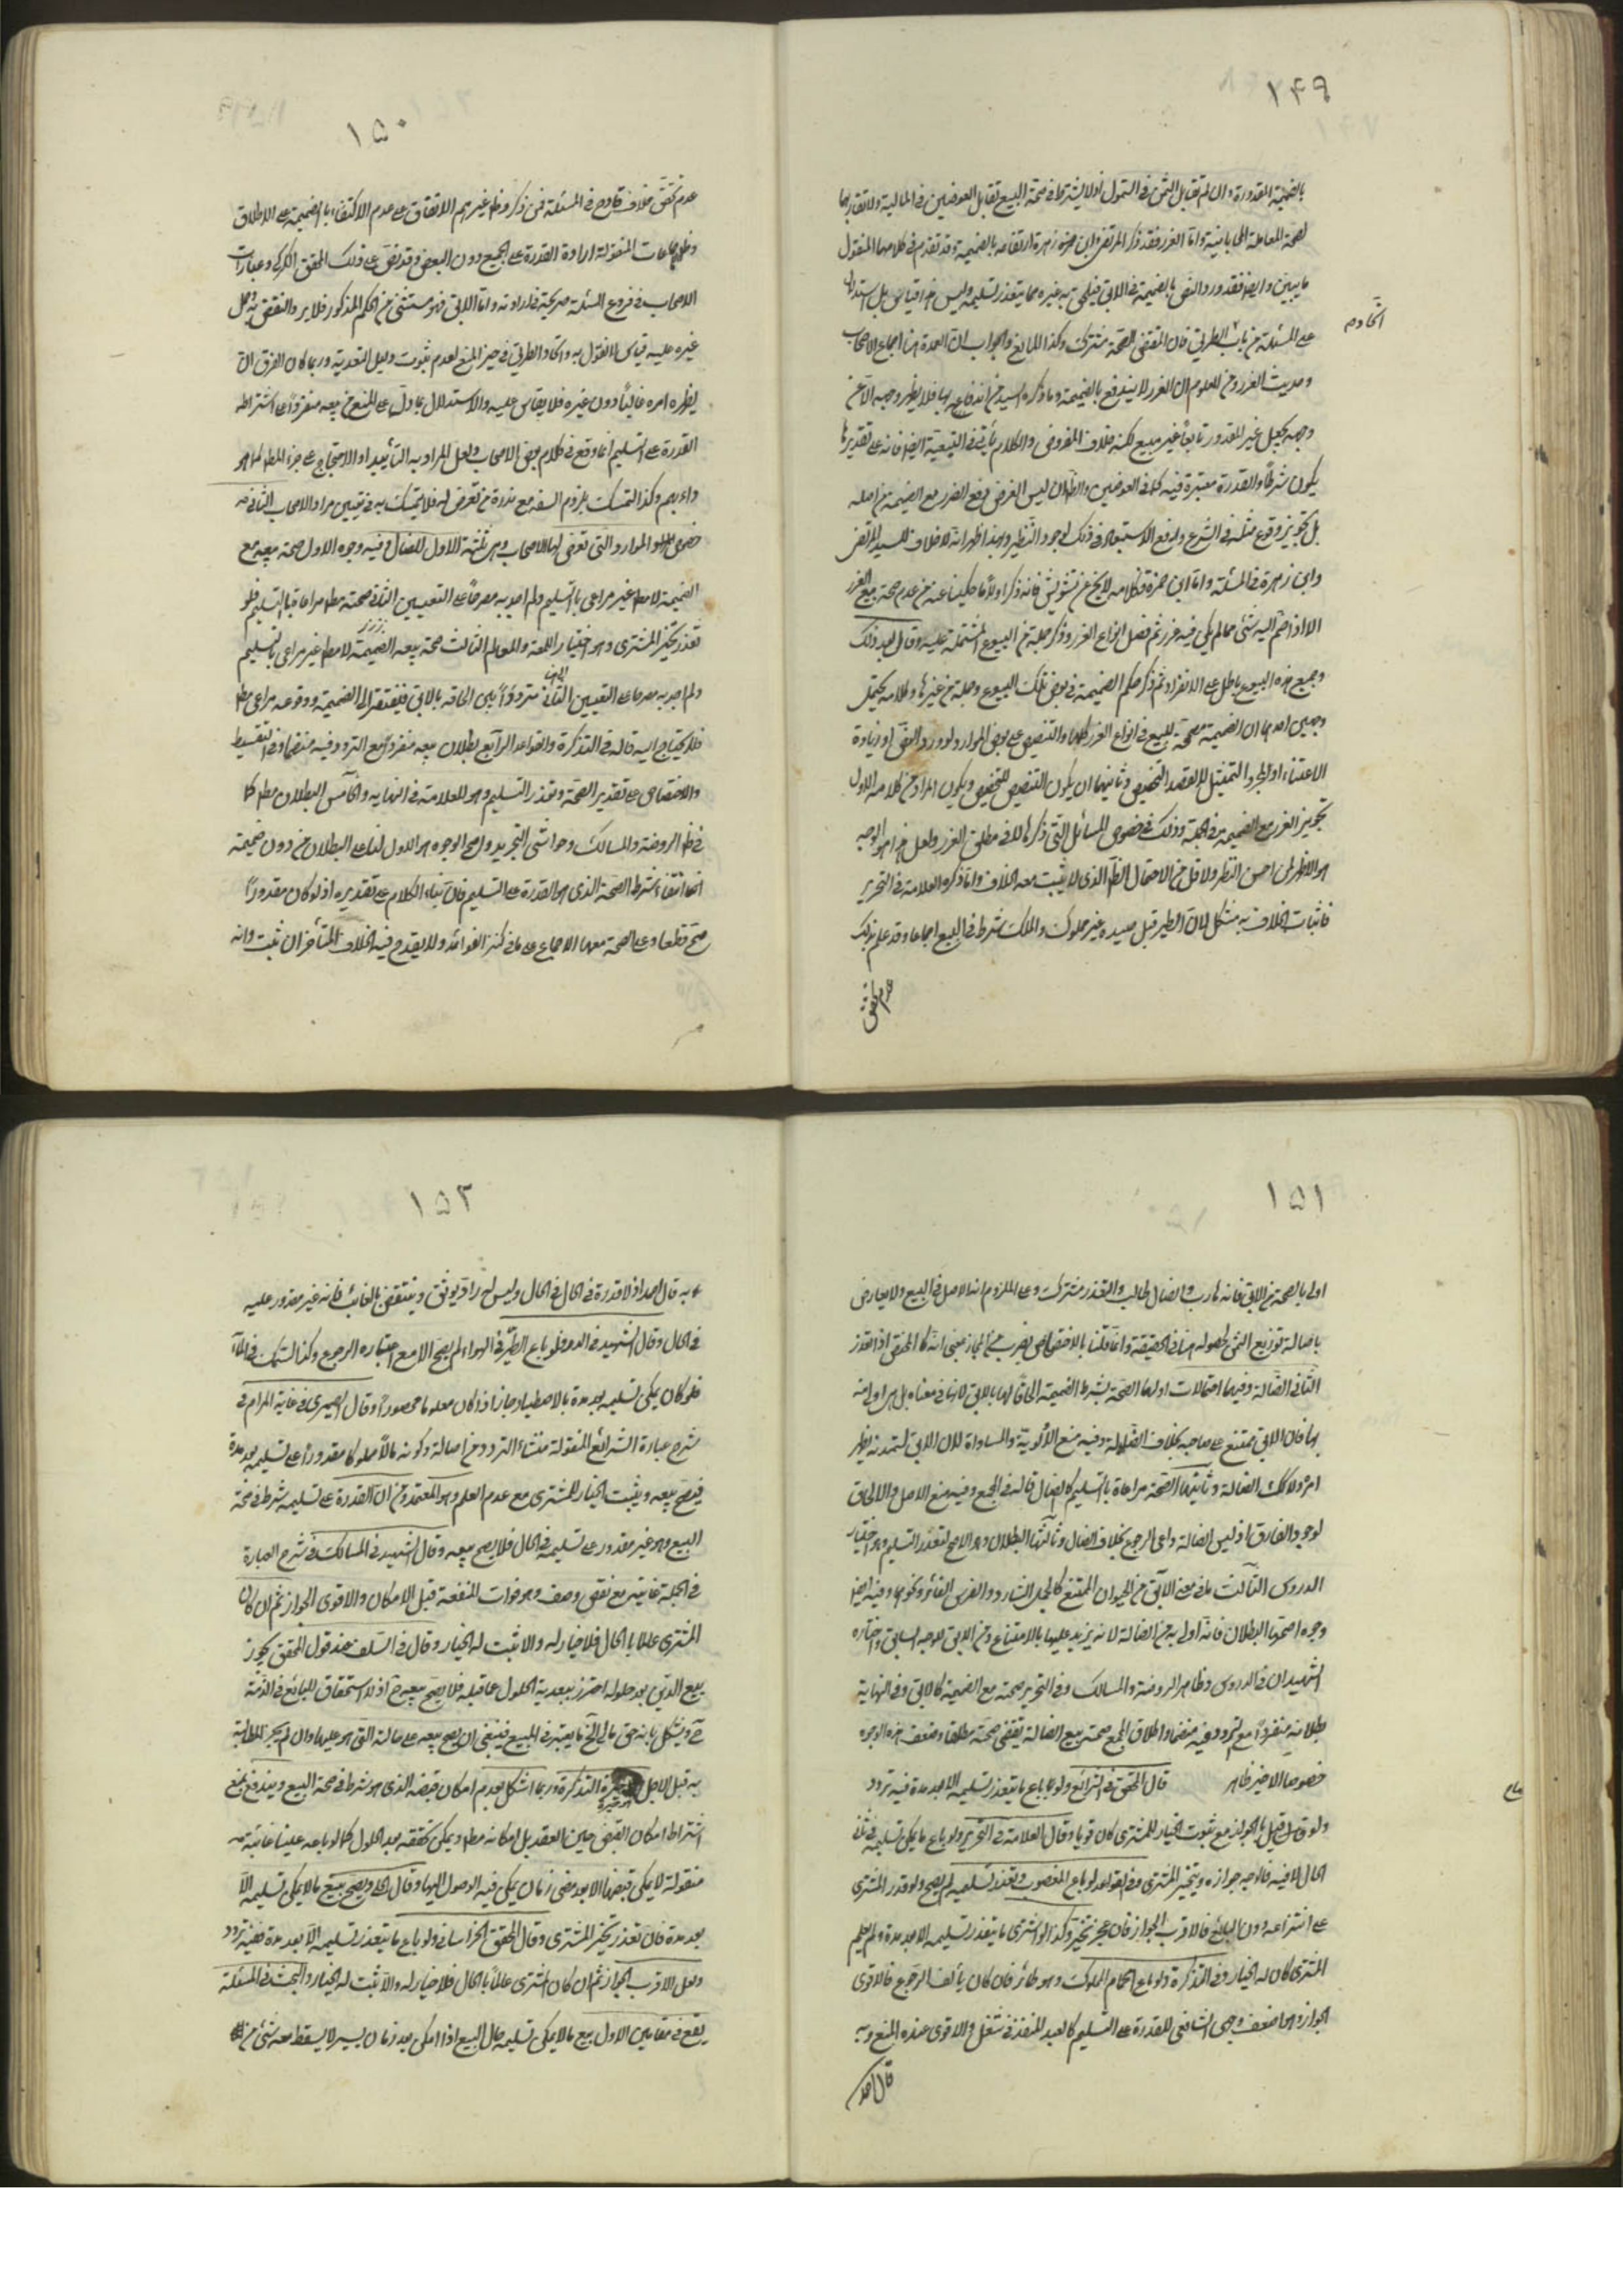 ١٤٩
بالضميمة المقدورة وان لم تقابل الثمن في التمول اذ لا يشترط في صحة البيع تقابل العوضين في المالية ولا تقاربهما
لصحة المعاملة المحاباتية واما الغرر فقد ذكر المرتضى وابن زهرة ارتفاعه بالضميمة وقد تقدم في كلامهما المنقول
ما يبين والنص بالضميمة في الابق فيلحق به غيره مما يتعذر تسليمه وليس هذا قياس بل استدلال
على المسئلة من باب الطريق فان المقتضي للصحة مشترك وكذا المانع والجواب ان العمدة هنا اجماع الاصحاب
اتحاد م
وحديث الغرر ومن المعلوم ان الغرر لا يندفع بالضميمة وما ذكره السيد من اندفاعه بها فلا يظهر وجهه الا عن
وجه يجعل غير المقدور تابعا غير مبيع لكنه خلاف المفروض والكلام يأتي في التبعية ايضا فانه على تقديرها
يكون شرطا والقدرة معتبرة فيه كما في العوضين والظ ان ليس الغرض دفع الغرر مع الضميمة من اصله
بل تجويز وقوع مثله في الشرع ودفع الاستبعاد في ذلك لوجود النظير وبهذا ظهر انه لا خلاف للسيد المرتضى
وابن زهرة في المسئلة واما ابن حمزة فكلامه لا يخ عن تشويش فانه ذكر اولا ما حكيناه عنه من عدم صحة بيع الغرر
الا اذا ضم اليه شئ مما لم يكن فيه غرر ثم فصل انواع الغرر وذكر جملة من البيوع المشتملة عليه وقال بعد ذلك
وجميع هذه البيوع باطل على الانفراد ثم ذكر حكم الضميمة في بعض تلك البيوع وجملة من غيرها وكلامه يحتمل
وجهين احدهما ان الضميمة مصححة للبيع في انواع الغرر كلها والتنصيص على بعض الموارد لورود النص او زيادة
الاعتناء او لمجرد التمثيل لا لقصد التخصيص وثانيهما ان يكون التنصيص للتخصيص ويكون المراد من كلامه الاول
تجويز الغرر مع الضميمة في الجملة وذلك في خصوص المسائل التي ذكرها لا في مطلق الغرر ولعل هذا هو الوجه
هو الاظهر لمن احسن النظر ولا اقل من الاحتمال الظ الذي لا يثبت معه الخلاف واما ما ذكره العلامة في التحرير
فاثبات الخلاف به مشكل لان الطير قبل صيده غير مملوك والملك شرط في البيع اجماعا وقد علم بذلك
عدم تحقق
١٥٠
عدم تحقق خلاف قادح في المسئلة فمن ذكر وظ غيرهم الاتفاق على عدم الاكتفاء بالضميمة على الاطلاق
الاجماعات المنقولة ارادة القدرة على الجميع دون البعض وقد نص على ذلك المحقق الكركي وعبارات
الاصحاب في فروع المسئلة صريحة في ارادته واما الابق فهو مستثنى من الحكم المذكور فلا يرد النقض به
غيره عليه قياس لا نقول به واتحاد الطريق في حيز المنع لعدم ثبوت دليل التعدية وربما كان الفرق ان
يظهر امره غالبا دون غيره فلا يقاس عليه والاستدلال بما دل على المنع من بيعه منفردا على اشتراط
القدرة على التسليم انما وقع في كلام بعض الاصحاب ولعل المراد به التأييد او الاحتجاج على جزء المط كما هو
دأبهم وكذا التمسك بلزوم السفه مع ندرة من تعرض له فلا يتمسك به في تعيين مراد الاصحاب الثاني في
خصوص الموارد التي تعرض لها الاصحاب وهي ثلثة الاول الضال وفيه وجوه الاول صحة بيعه مع
الضميمة لا مط غير مراعى بالتسليم ولم اجد به مصرحا على التعيين الثاني صحته مط مراعاة بالتسليم فلو
تعذر تخير المشتري وهو اختيار اللمعة والمعالم الثالث صحة بيعه مع الضميمة لا مط غير مراعى بالتسليم
ولم اجد به مصرحا على التعيين الثاني مترددا بين الحاقه بالابق فيفتقر الى الضميمة ووقوعه مراعى مط
فلا يحتاج اليه قاله في التذكرة والقواعد الرابع بطلان بيعه منفردا مع التردد فيه منضما وفي التقسيط
والاختصاص على تقدير الصحة وتعذر التسليم وهو للعلامة في النهاية والخامس البطلان مط كما
في ظ الروضة والمسالك وحواشي التجريد واصح الوجوه هو الاول لنا على البطلان من دون ضميمة
انتفاء شرط الصحة الذي هو القدرة على التسليم فان بناء الكلام على تقديره اذ لو كان مقدورا
صح قطعا وعلى الصحة معها الاجماع على ما في كنز الفوائد ولا يقدح فيه الخلاف المتأخر ان ثبت وانه
١٥١
اولى بالصحة من الابق فانه هارب والضال طالب والتعذر مشترك وعلى اللزوم انه الاصل في البيع ولا يعارض
باصالة توزيع الثمن لحصوله هنا في الحقيقة وانما قلنا بالاختصاص بضرب من المجاز بمعنى انه كالمختص اذا تعذر
الثاني الضالة وفيها احتمالات اولها الصحة بشرط الضميمة الحاقا لها بالابق لانها في معناه بل هي اولى منه
بها فان الابق ممتنع على صاحبه بخلاف الضالة وفيه منع الأولوية والمساواة لان الابق لتمدنه يظهر
امره ولا كك الضالة وثانيها الصحة مراعاة بالتسليم كالضال قاله في الجمع وفيه منع الاصل والالحاق
لوجود الفارق اذ ليس للضالة داعي الرجوع بخلاف الضال وثالثها البطلان وهو الاصح لتعذر التسليم وهو اختيار
الدروس الثالث ما في معنى الابق من الحيوان الممتنع كالجمل الشارد والفرس العائر ونحوهما وفيه ايضا
وجوه اصحها البطلان فانه اولى به من الضالة لانه يزيد عليها بالامتناع ومن الابق للوجه السابق واختاره
الشهيدان في الدروس وظاهر الروضة والمسالك وفي التحرير صحته مع الضميمة كالابق وفي النهاية
بطلانه منفردا مع تردد فيه منضما واطلاق الجمع صحة بيع الضالة يقتضي صحته مطلقا وضعف هذه الوجوه
خصوصا الاخير ظاهر قال المحقق في الشرائع ولو باع ما يتعذر تسليمه الا بعد مدة فيه تردد
ولو قيل بالجواز مع ثبوت الخيار للمشتري كان قويا وقال العلامة في التحرير ولو باع ما يمكن تسليمه في ثاني
الحال لا فيه فالوجه جوازه ويتخير المشتري وفي القواعد لو باع المغصوب وتعذر تسليمه لم يصح ولو قدر المشتري
على انتزاعه دون البائع فالاقرب الجواز فان عجز تخير وكذا لو اشترى ما يتعذر تسليمه الا بعد مدة ولم يعلم
المشتري كان له الخيار وفي التذكرة ولو باع الحمام المملوك وهو طائر فان كان يألف الرجوع فالاقوى
الجواز وهو اضعف وجهي الشافعي للقدرة على التسليم كالعبد المنفذ في شغل والاقوى عنده المنع وبه
قال احمد
١٥٢
وبه قال احمد اذ لا قدرة في الحال وليس له يوثق وينتقض بالغائب فانه غير مقدور عليه
في الحال وقال الشهيد في الدروس لو باع الطير في الهواء لم يصح الا مع اعتياده الرجوع وكذا السمك في الماء
فلو كان يمكن تسليمه بعد مدة بالاصطياد جاز اذا كان معلوما محصورا وقال الصيمري في غاية المرام في
شرح عبارة الشرائع المنقولة منشاء التردد من اصالة وكونه مالا مملوكا مقدورا على تسليمه بعد مدة
فيصح بيعه ويثبت الخيار للمشتري مع عدم العلم وهو المعتمد ومن ان القدرة على تسليمه شرط في صحة
البيع وهو غير مقدور على تسليمه في الحال فلا يصح بيعه وقال الشهيد في المسالك في شرح العبارة
في الجملة غايته مع نقص وصف وهو فوات المنفعة قبل الامكان والاقوى الجواز ثم ان كان
المشتري عالما بالحال فلا خيار له والا ثبت له الخيار وقال في السلف عند قول المحقق يجوز
بيع الدين بعد حلوله احترز ببعدية الحلول عما قبله فلا يصح بيعه ح اذ لا استحقاق للبايع في الذمة
ح ويشكل بانه حق مالي الى اخر ما يعتبر في المبيع فينبغي ان يصح بيعه على حالته التي هو عليها وان لم يجز المطالبة
به قبل الاجل التذكرة وربما اشكل بعدم امكان قبضه الذي هو شرط في صحة البيع ويندفع بمنع
اشتراط امكان القبض حين العقد بل امكانه مط ويمكن تحققه بعد الحلول كما لو باعه عينا غائبة
منقولة لا يمكن قبضها الا بعد مضي زمان يمكن فيه الوصول اليها وقال ويصح بيع ما لا يمكن تسليمه الا
بعد مدة فان تعذر تخير المشتري وقال المحقق الخراساني ولو باع ما يتعذر تسليمه الا بعد مدة ففيه تردد
ولعل الاقرب الجواز ثم ان كان المشتري عالما بالحال فلا خيار له والا ثبت له الخيار والبحث في المسئلة
يقع في مقامين الاول بيع ما لا يمكن تسليمه حال البيع اذا امكن بعد زمان يسير لا يسقط معه شئ من